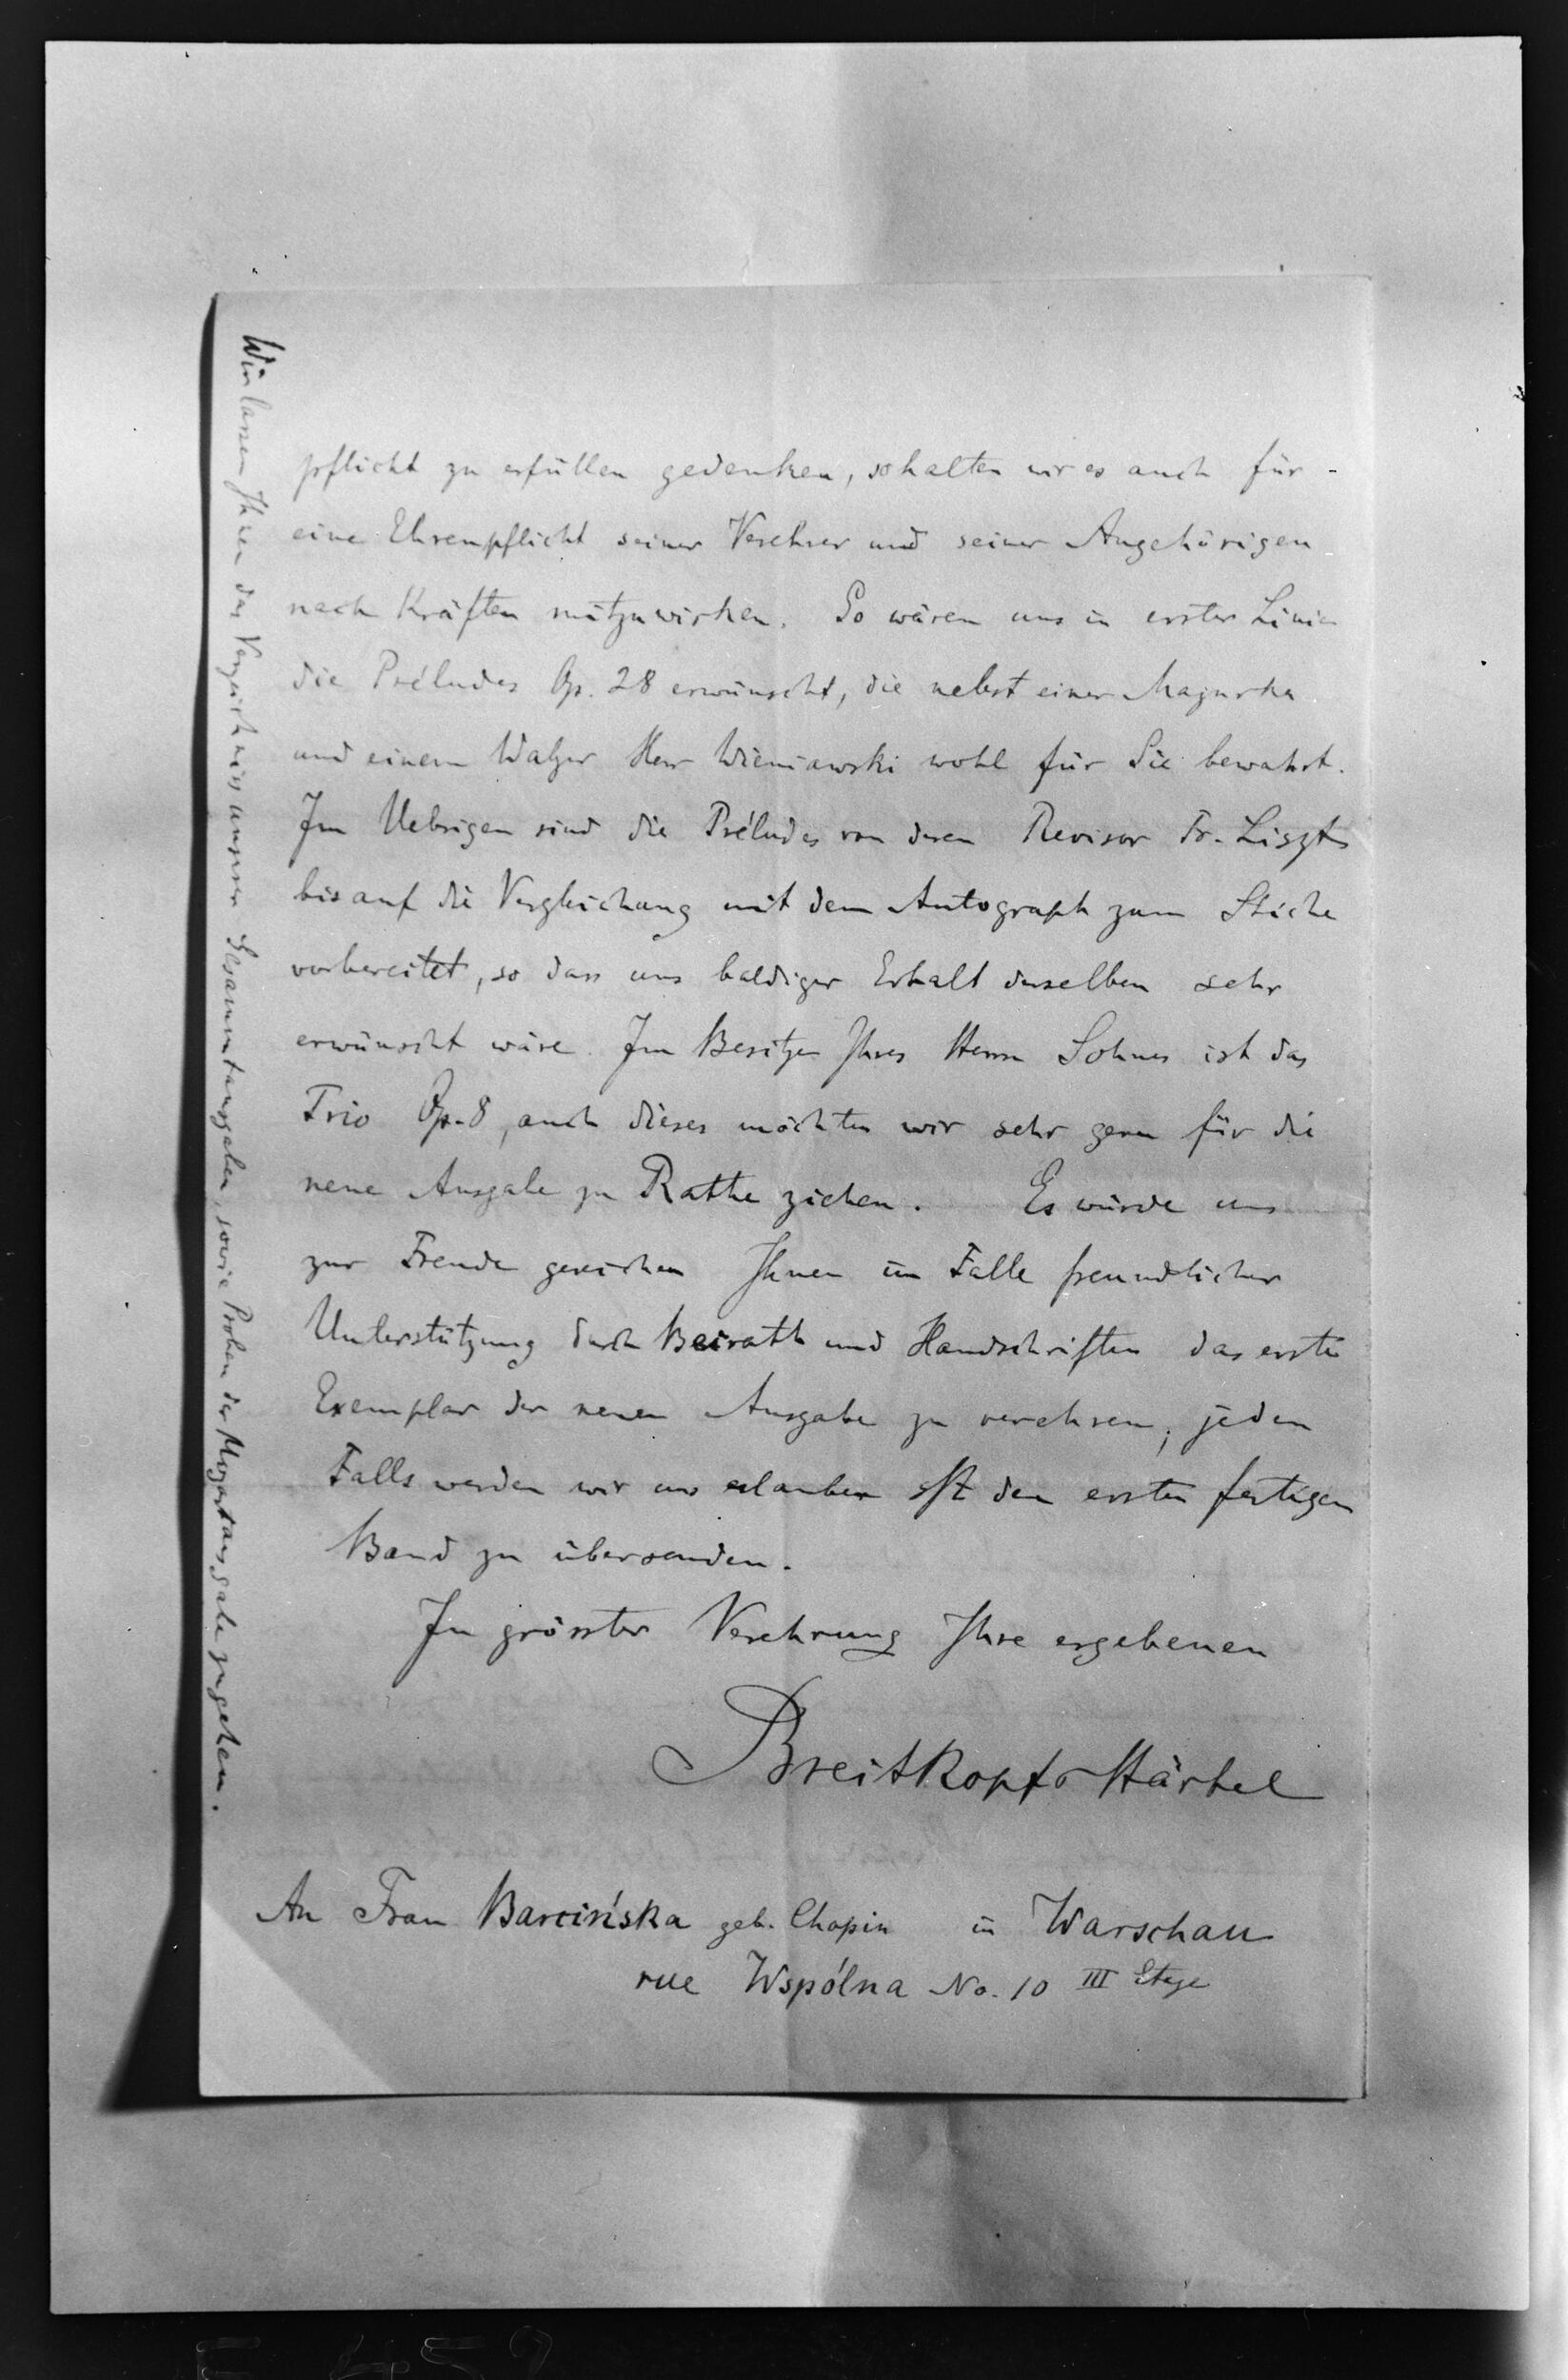 pflicht zu erfüllen gedenken, so halten wir es auch für
eine Ehrenpflicht seiner Verehrer und seiner Angehörigen
nach Kräften mitzuwirken. So wären uns in erster Linie
die Préludes Op. 28 erwünscht, die nebst einer Mazurka
und einem Walzer Herr Wieniawski wohl für Sie bewahrt.
Im Uebrigen sind die Préludes von deren Revisor Fr. Liszt
bis auf die Vergleichung mit dem Autograph zum Stiche
vorbereitet, so dass uns baldiger Erhalt derselben sehr
erwünscht wäre. Im Besitze Ihres Herrn Sohnes ist das
Trio Op. 8, auch dieses möchten wir sehr gern für die
neue Ausgabe zu Rathe ziehen. Es würde uns
zur Freude gereichen Ihnen im Falle freundlicher
Unterstützung durch Beirath und Handschriften das erste
Exemplar der neuen Ausgabe zu verehren, jeden
Falls werden wir uns erlauben den ersten fertigen
Band zu übersenden.
In grösster Verehrung Ihre ergebenen
Breitkopf & Härtel
An Frau Barcińska geb. Chopin in Warschau
rue Wspólna No. 10 III Etage
Wir lassen Ihnen das Verzeichniss unserer Gesammtausgaben, sowie Proben der Mozartausgabe zugehen.